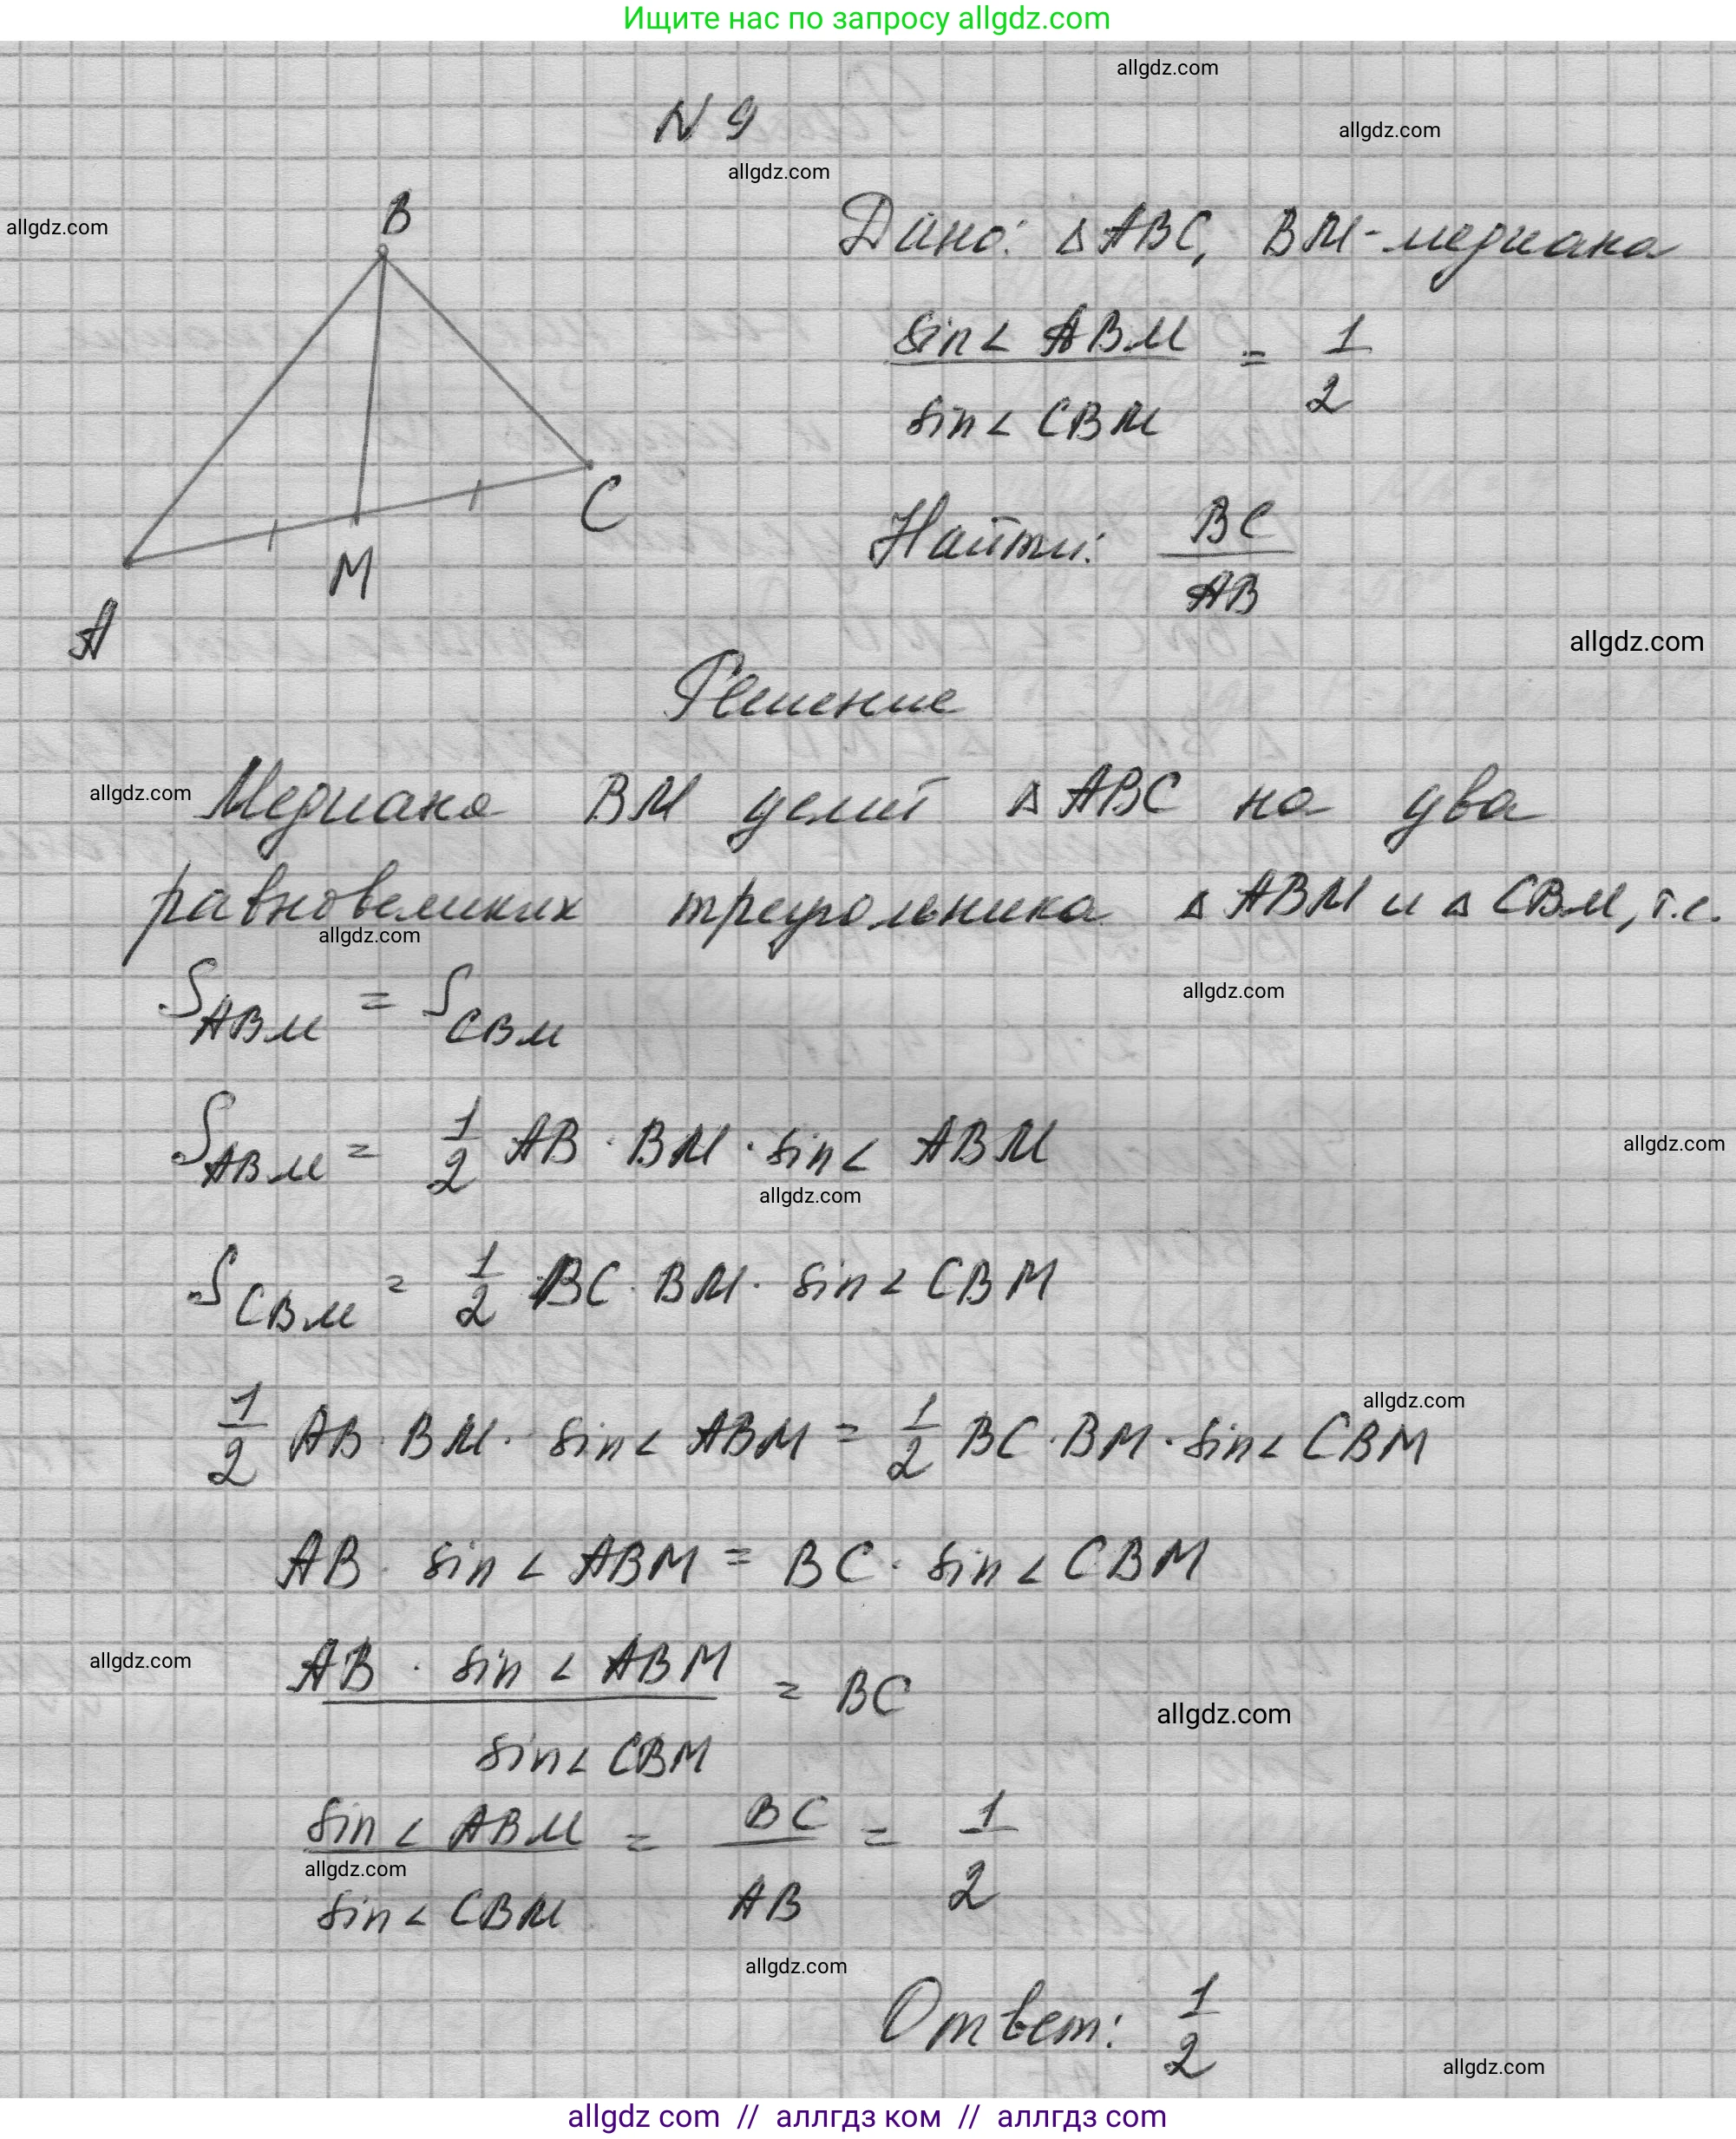 Ищите нас по запросу allgdz.com
allgdz.com
N 9
allgdz.com
allgdz.com
allgdz.com
B
Дано: △ABC, BM - медиана
sin∠ ABM / sin∠ CBM = 1/2
C
M
A
Найти: BC / AB
allgdz.com
Решение
allgdz.com
Медиана BM делит △ABC на два
равновеликих треугольника △ABM и △CBM, т.е.
allgdz.com
S ABM = S CBM
allgdz.com
S ABM = 1/2 AB · BM · sin∠ ABM
allgdz.com
allgdz.com
S CBM = 1/2 BC · BM · sin∠ CBM
allgdz.com
1/2 AB · BM · sin∠ ABM = 1/2 BC · BM · sin∠ CBM
AB · sin∠ ABM = BC · sin∠ CBM
allgdz.com
AB · sin∠ ABM / sin∠ CBM = BC
allgdz.com
sin∠ ABM / sin∠ CBM = BC / AB = 1/2
allgdz.com
allgdz.com
Ответ: 1/2
allgdz.com
allgdz com // аллгдз ком // аллгдз com